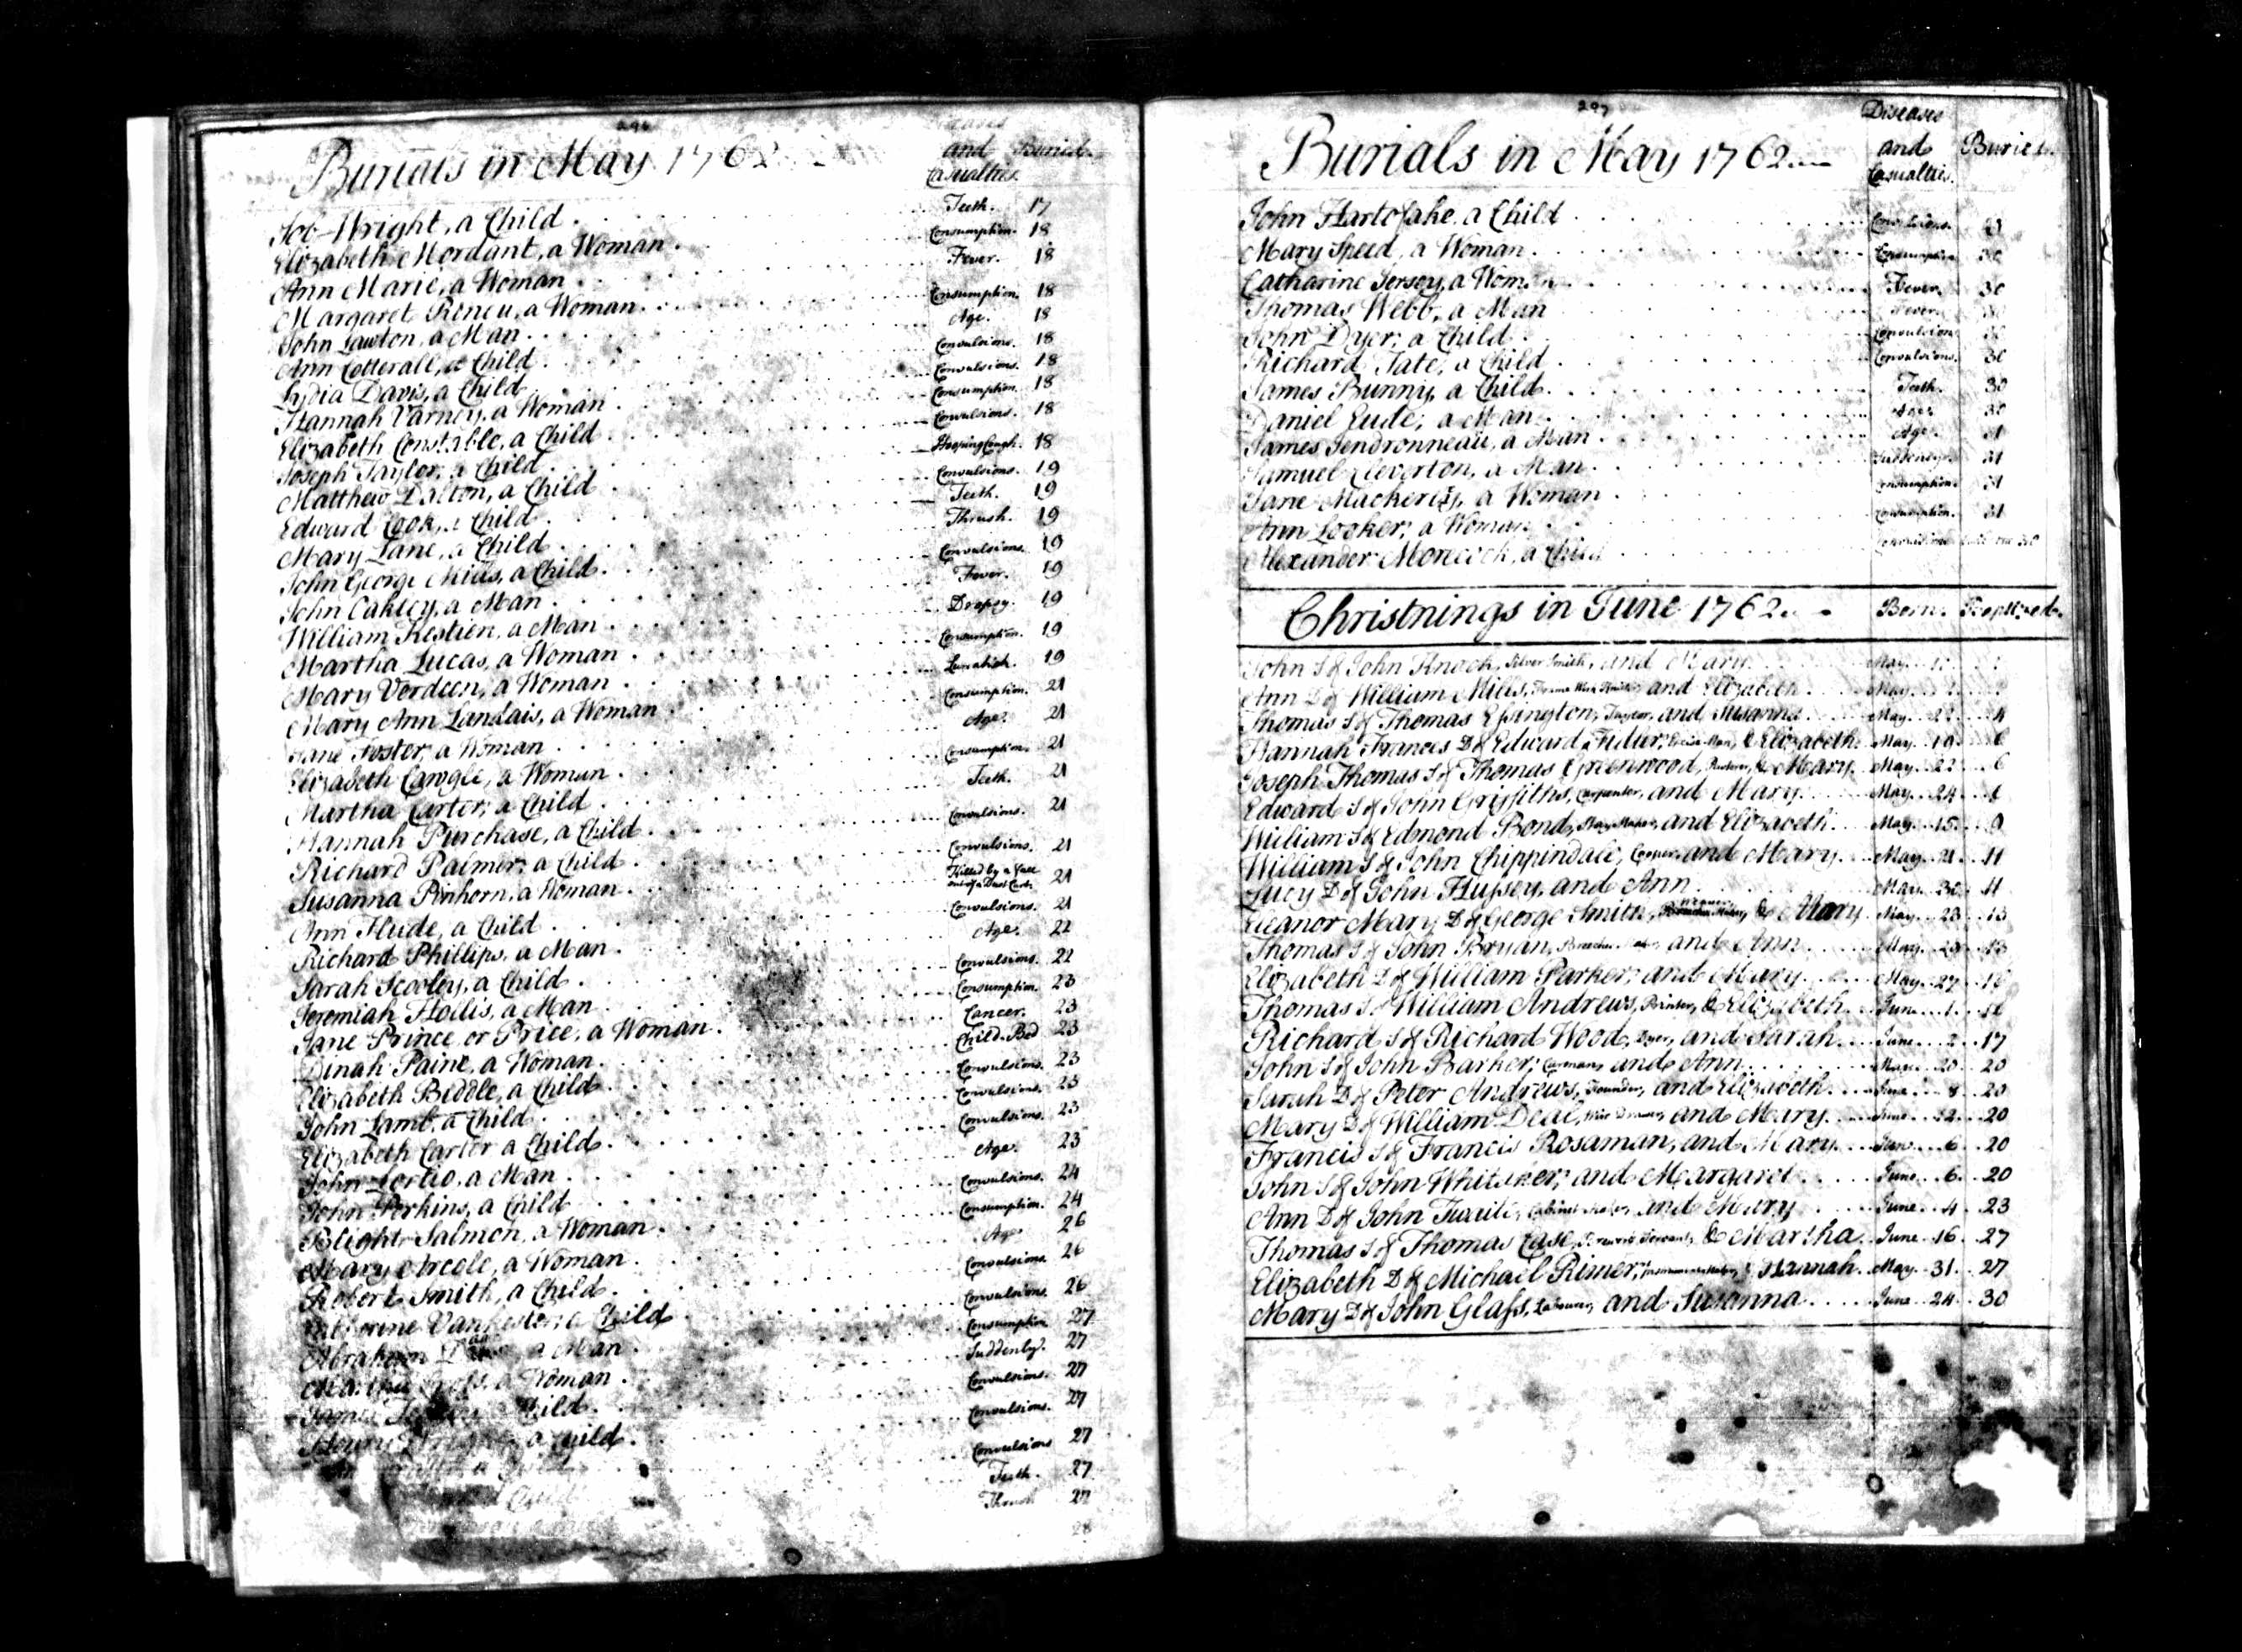 296
Burials in May 1762
and Buried.
Casualties.
Job Wright, a Child Teeth. 17
Elizabeth Mordant, a Woman Consumption. 18
Ann Marie, a Woman Fever. 18
Margaret Reneu, a Woman Consumption. 18
John Lawton, a Man Age. 18
Ann Cotterall, a Child Convulsions. 18
Lydia Davis, a Child Convulsions. 18
Hannah Varney, a Woman Consumption. 18
Elizabeth Constable, a Child Convulsions. 18
Joseph Taylor, a Child Hooping Cough. 18
Matthew Dalton, a Child Convulsions. 19
Edward Cook, a Child Teeth. 19
Mary Lane, a Child Thrush. 19
John George Mills, a Child Convulsions. 19
John Oakley, a Man Fever. 19
William Kestien, a Man Dropsy. 19
Martha Lucas, a Woman Consumption. 19
Mary Verdeen, a Woman Lunatick. 19
Mary Ann Landais, a Woman Consumption. 21
Jane Foster, a Woman Age. 21
Elizabeth, a Woman Consumption. 21
Martha Carter, a Child Teeth. 21
Hannah Purchase, a Child Convulsions. 21
Richard Palmer, a Child Convulsions. 21
Susanna Pinhorn, a Woman Killed by a Fall out of a Dust Cart. 21
Ann Hude, a Child Convulsions. 21
Richard Phillips, a Man Age. 22
Sarah Scooley, a Child Convulsions. 22
Jeremiah Hollis, a Man Consumption. 23
Jane Prince or Price, a Woman Cancer. 23
Dinah Paine, a Woman Child Bed 23
Elizabeth Biddle, a Child Convulsions. 23
John Lamb, a Child Convulsions. 23
Elizabeth Carter a Child Convulsions. 23
John, a Man Age. 23
John Perkins, a Child Convulsions. 24
Blight Salmon, a Woman Consumption. 24
Mary, a Woman Age 26
Robert Smith, a Child Convulsions. 26
a Child Convulsions. 26
Abraham a Man Consumption 27
a Woman Suddenly. 27
James Child Convulsions. 27
Henry a Child Convulsions. 27
Convulsions 27
Teeth. 27
27
28
297
Burials in May 1762
Diseases
and Buried.
Casualties.
John Hartoshke, a Child Convulsions.
Mary Speed, a Woman Consumption 30
Catharine Jersey, a Woman Fever. 30
Thomas Webb, a Man Fever. 30
John Dyer, a Child Convulsions 30
Richard Tate, a Child Convulsions. 30
James Bunny, a Child Teeth. 30
Daniel Eude, a Man Age 30
James Jendronneau, a Man Age. 31
Samuel Cleverton, a Man Suddenly. 31
Jane, a Woman Consumption. 31
Ann Looker, a Woman Consumption. 31
Alexander Morecock, a Child
Christnings in June 1762. Born. Baptized.
John S of John Knock, Silver Smith, and Mary May
Ann D of William Mills, and Elizabeth May
Thomas S of Thomas Epsington, Taylor, and Susanna May 22 4
Hannah Frances D of Edward, & Elizabeth May 19 6
Joseph Thomas S of Thomas Greenwood, & Mary May 22 6
Edward S of John Griffiths, Carpenter, and Mary May 24 6
William S of Edmond Bond, Stay Maker, and Elizabeth May 15 9
William S of John Chippindale, Cooper, and Mary May 21 11
Lucy D of John Hussey, and Ann May 30 11
Eleanor Mary D of George Smith, & Mary May 23 13
Thomas S of John Bryan, Breeches Maker, and Ann May 29 13
Elizabeth D of William Parker, and Mary May 27 16
Thomas S of William Andrews, Printer, & Elizabeth June 1 16
Richard S of Richard Wood, Dyer, and Sarah June 2 17
John S of John Barker, Carman, and Ann 20 20
Sarah D of Peter Andrews, Founder, and Elizabeth June 8 20
Mary D of William Deal, Wire Drawer, and Mary June 12 20
Francis S of Francis Rosaman, and Mary June 6 20
John S of John Whitaker, and Margaret June 6 20
Ann D of John Twaite, Cabinet Maker, and Mary June 4 23
Thomas S of Thomas Case, Servant, & Martha June 16 27
Elizabeth D of Michael Rimer, Instrument Maker, & Hannah May 31 27
Mary D of John Glass, Labourer, and Susanna June 24 30